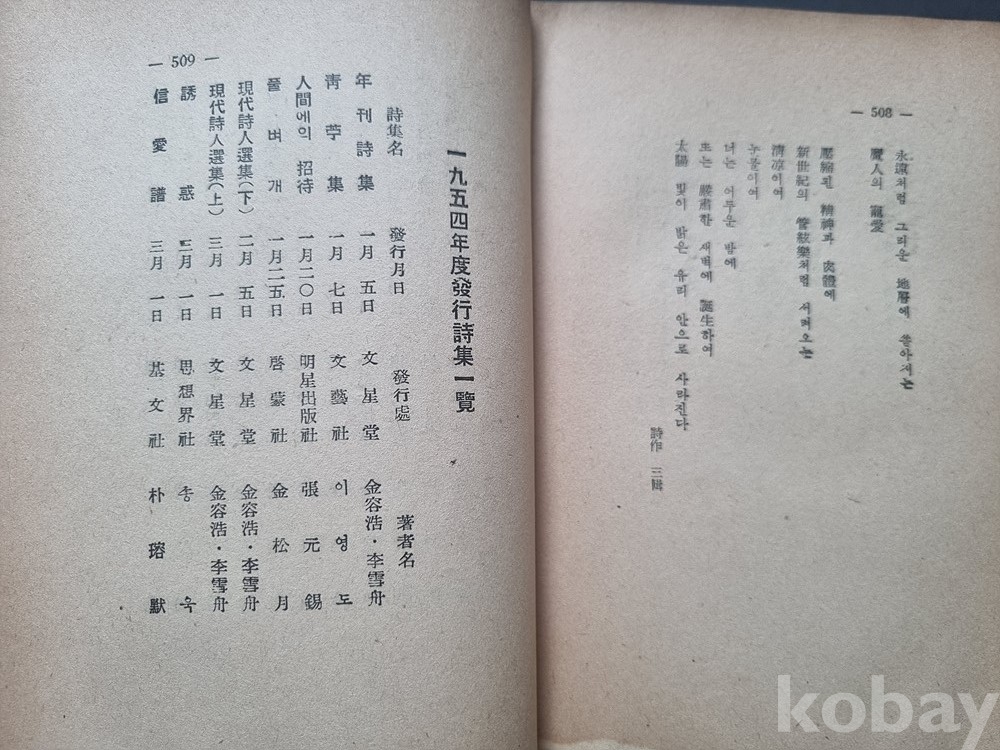 — 508 —
永遠처럼 그리운 地層에 쏟아지는
魔人의 寵愛
壓縮된 精神과 肉體에
新世紀의 管絃樂처럼 서며오는
淸凉이여
눈물이여
너는 어두운 밤에
또는 嚴肅한 새벽에 誕生하여
太陽 빛이 밝은 유리 안으로 사라진다
詩作 三輯
— 509 —
一九五四年度發行詩集一覽
詩集名 發行月日 發行處 著者名
年刊詩集 一月 五日 文星堂 金容浩・李雪舟
靑苧集 一月 七日 文藝社 이영도
人間에의 招待 一月二〇日 明星出版社 張元錫
풀벼개 一月二五日 啓蒙社 金松月
現代詩人選集(下) 二月 五日 文星堂 金容浩・李雪舟
現代詩人選集(上) 三月 一日 文星堂 金容浩・李雪舟
誘惑 三月 一日 思想界社 송욱
信愛譜 三月 一日 基文社 朴瑢默
kobay